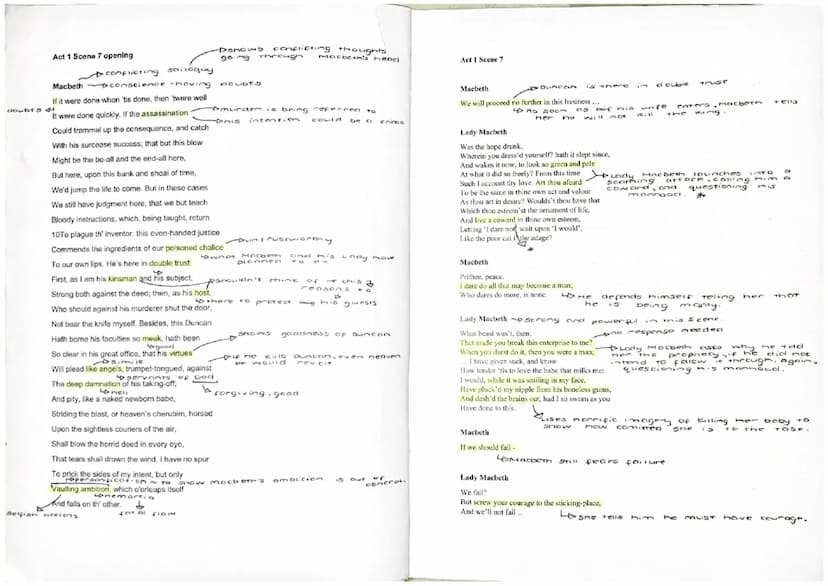 Act 1 Scene 7 opening
shows conflicting thoughts
going through Macbeth's head
conflicting soliloquy
Macbeth
conscience - having doubts
If it were done when 'tis done, then 'twere well
doubts it
It were done quickly. If the assassination
murder is being referred to
his intention could be a crime
Could trammel up the consequence, and catch
With his surcease success; that but this blow
Might be the be-all and the end-all here,
But here, upon this bank and shoal of time,
We'd jump the life to come. But in these cases
We still have judgment here, that we but teach
Bloody instructions, which, being taught, return
10To plague th' inventor: this even-handed justice
untrustworthy
Commends the ingredients of our poisoned chalice
what Macbeth and his lady have
planned to do
To our own lips. He's here in double trust:
First, as I am his kinsman and his subject,
shouldn't think of it this
reasons to
Strong both against the deed; then, as his host,
there to protect his guests
Who should against his murderer shut the door,
Not bear the knife myself. Besides, this Duncan
shows goodness of Duncan
Hath borne his faculties so meek, hath been
good
So clear in his great office, that his virtues
if he kills Duncan, even heaven
would revolt
simile
Will plead like angels, trumpet-tongued, against
servants of God
The deep damnation of his taking-off;
hell
forgiving, good
And pity, like a naked newborn babe,
Striding the blast, or heaven's cherubim, horsed
Upon the sightless couriers of the air,
Shall blow the horrid deed in every eye,
That tears shall drown the wind. I have no spur
To prick the sides of my intent, but only
personification - to show Macbeth's ambition is out of
control
Vaulting ambition, which o'erleaps itself
hemartia
And falls on th' other.
fatal flaw
Act 1 Scene 7
Macbeth
Duncan is there in double trust
We will proceed no further in this business ...
As soon as his wife enters, Macbeth tells
her he will not kill the king.
Lady Macbeth
Was the hope drunk,
Wherein you dress'd yourself? hath it slept since,
And wakes it now, to look so green and pale
At what it did so freely? From this time
Such I account thy love. Art thou afeard
To be the same in thine own act and valour
As thou art in desire? Wouldst thou have that
Which thou esteem'st the ornament of life,
And live a coward in thine own esteem,
Letting 'I dare not' wait upon 'I would',
Like the poor cat i' the adage?
Lady Macbeth launches into a
scathing attack, calling him a
coward, and questioning his
manhood.
Macbeth
Prithee, peace.
I dare do all that may become a man;
Who dares do more, is none.
He defends himself telling her that
he is being manly.
Lady Macbeth
strong and powerful in this scene.
no response needed
What beast was't, then,
That made you break this enterprise to me?
When you durst do it, then you were a man;
... I have given suck, and know
How tender 'tis to love the babe that milks me:
I would, while it was smiling in my face,
Have pluck'd my nipple from his boneless gums,
And dash'd the brains out, had I so sworn as you
Have done to this.
Lady Macbeth asks why he told
her the prophecy, if he did not
intend to follow it through. Again,
questioning his manhood.
uses horrific imagery of killing her baby to
show how commited she is to the task.
Macbeth
If we should fail -
Macbeth still fears failure
Lady Macbeth
We fail?
But screw your courage to the sticking-place,
And we'll not fail ...
She tells him he must have courage.